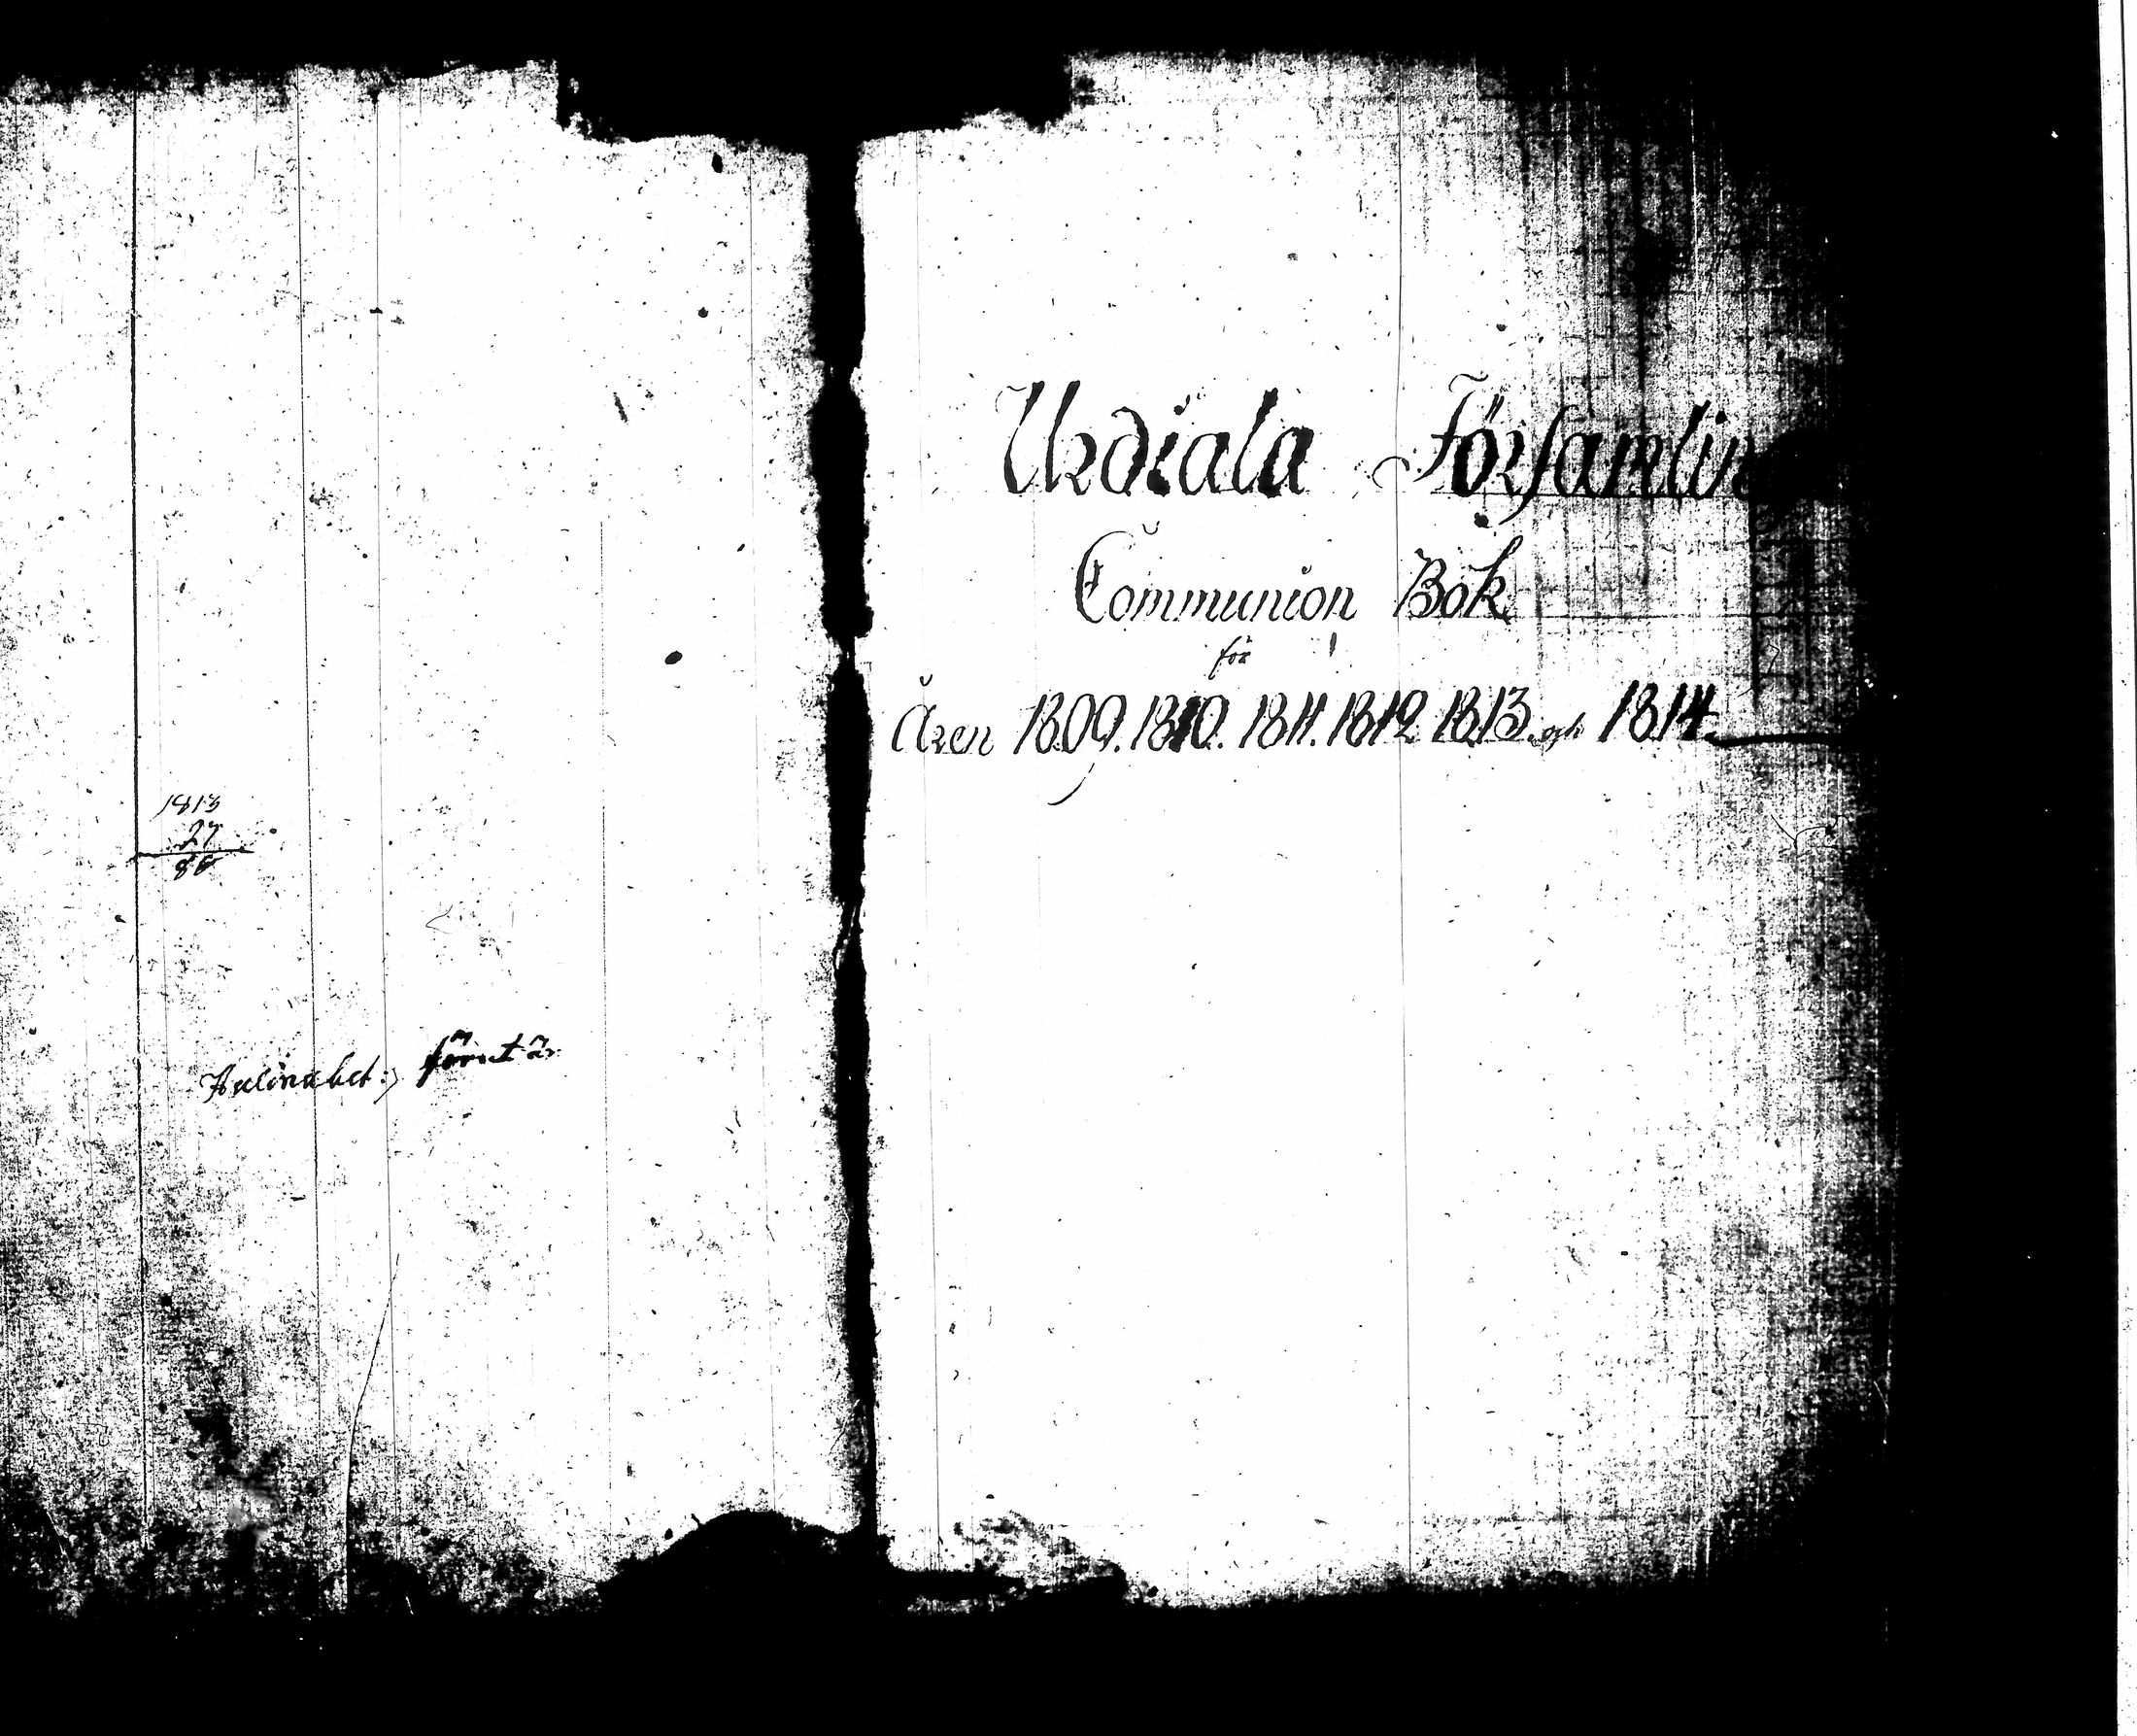 1813
27
86
förut är
Urdiala Församlin
Communion Bok
för
Åren 1809. 1810. 1811. 1812 1813. och 1814.